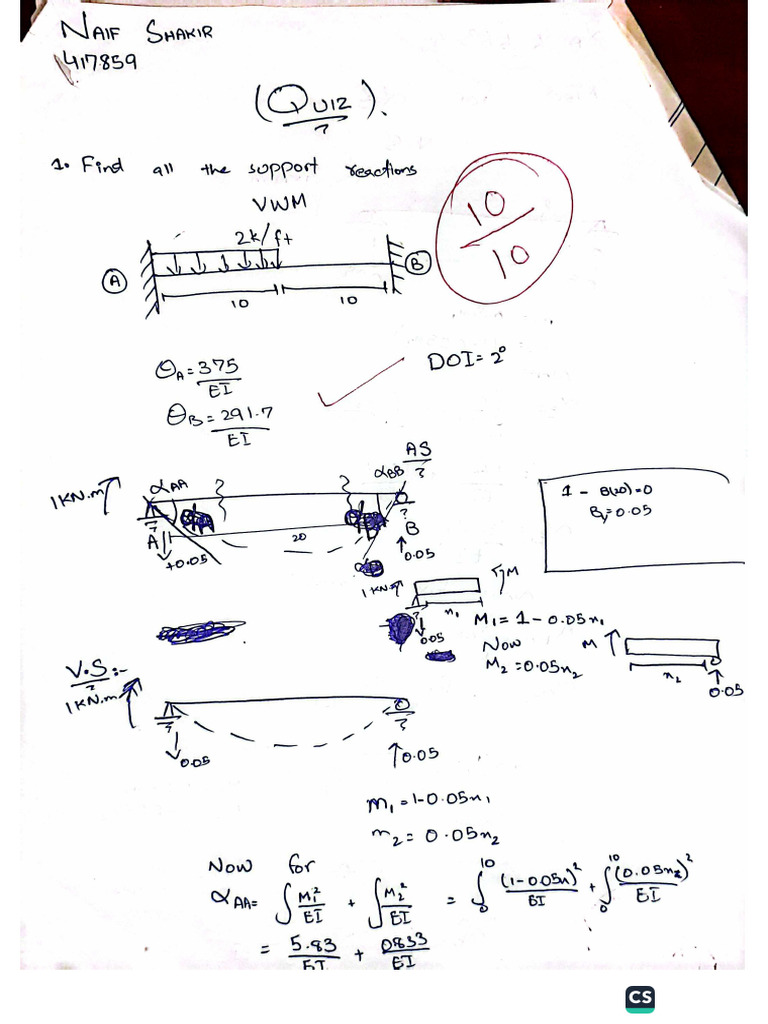 NAIF SHAKIR
417859
(QUIZ).
1. Find all the support reactions
VWM
10/10
2k/ft
A
B
10
10
DOI = 2°
θA = 375/EI
θB = 291.7/EI
AS
1 KN.m
αAA
αBB
1 - B(20) = 0
By = 0.05
A
20
B
+0.05
0.05
1 KN
M
x1
0.05
M1 = 1 - 0.05x1
Now
M2 = 0.05x2
M
x2
0.05
V.S:-
1 KN.m
0.05
0.05
m1 = 1-0.05x1
m2 = 0.05x2
Now for
αAA = ∫ M1²/EI + ∫ M2²/EI = ∫₀¹⁰ (1-0.05x)²/EI + ∫₀¹⁰ (0.05x2)²/EI
= 5.83/EI + 0833/EI
CS